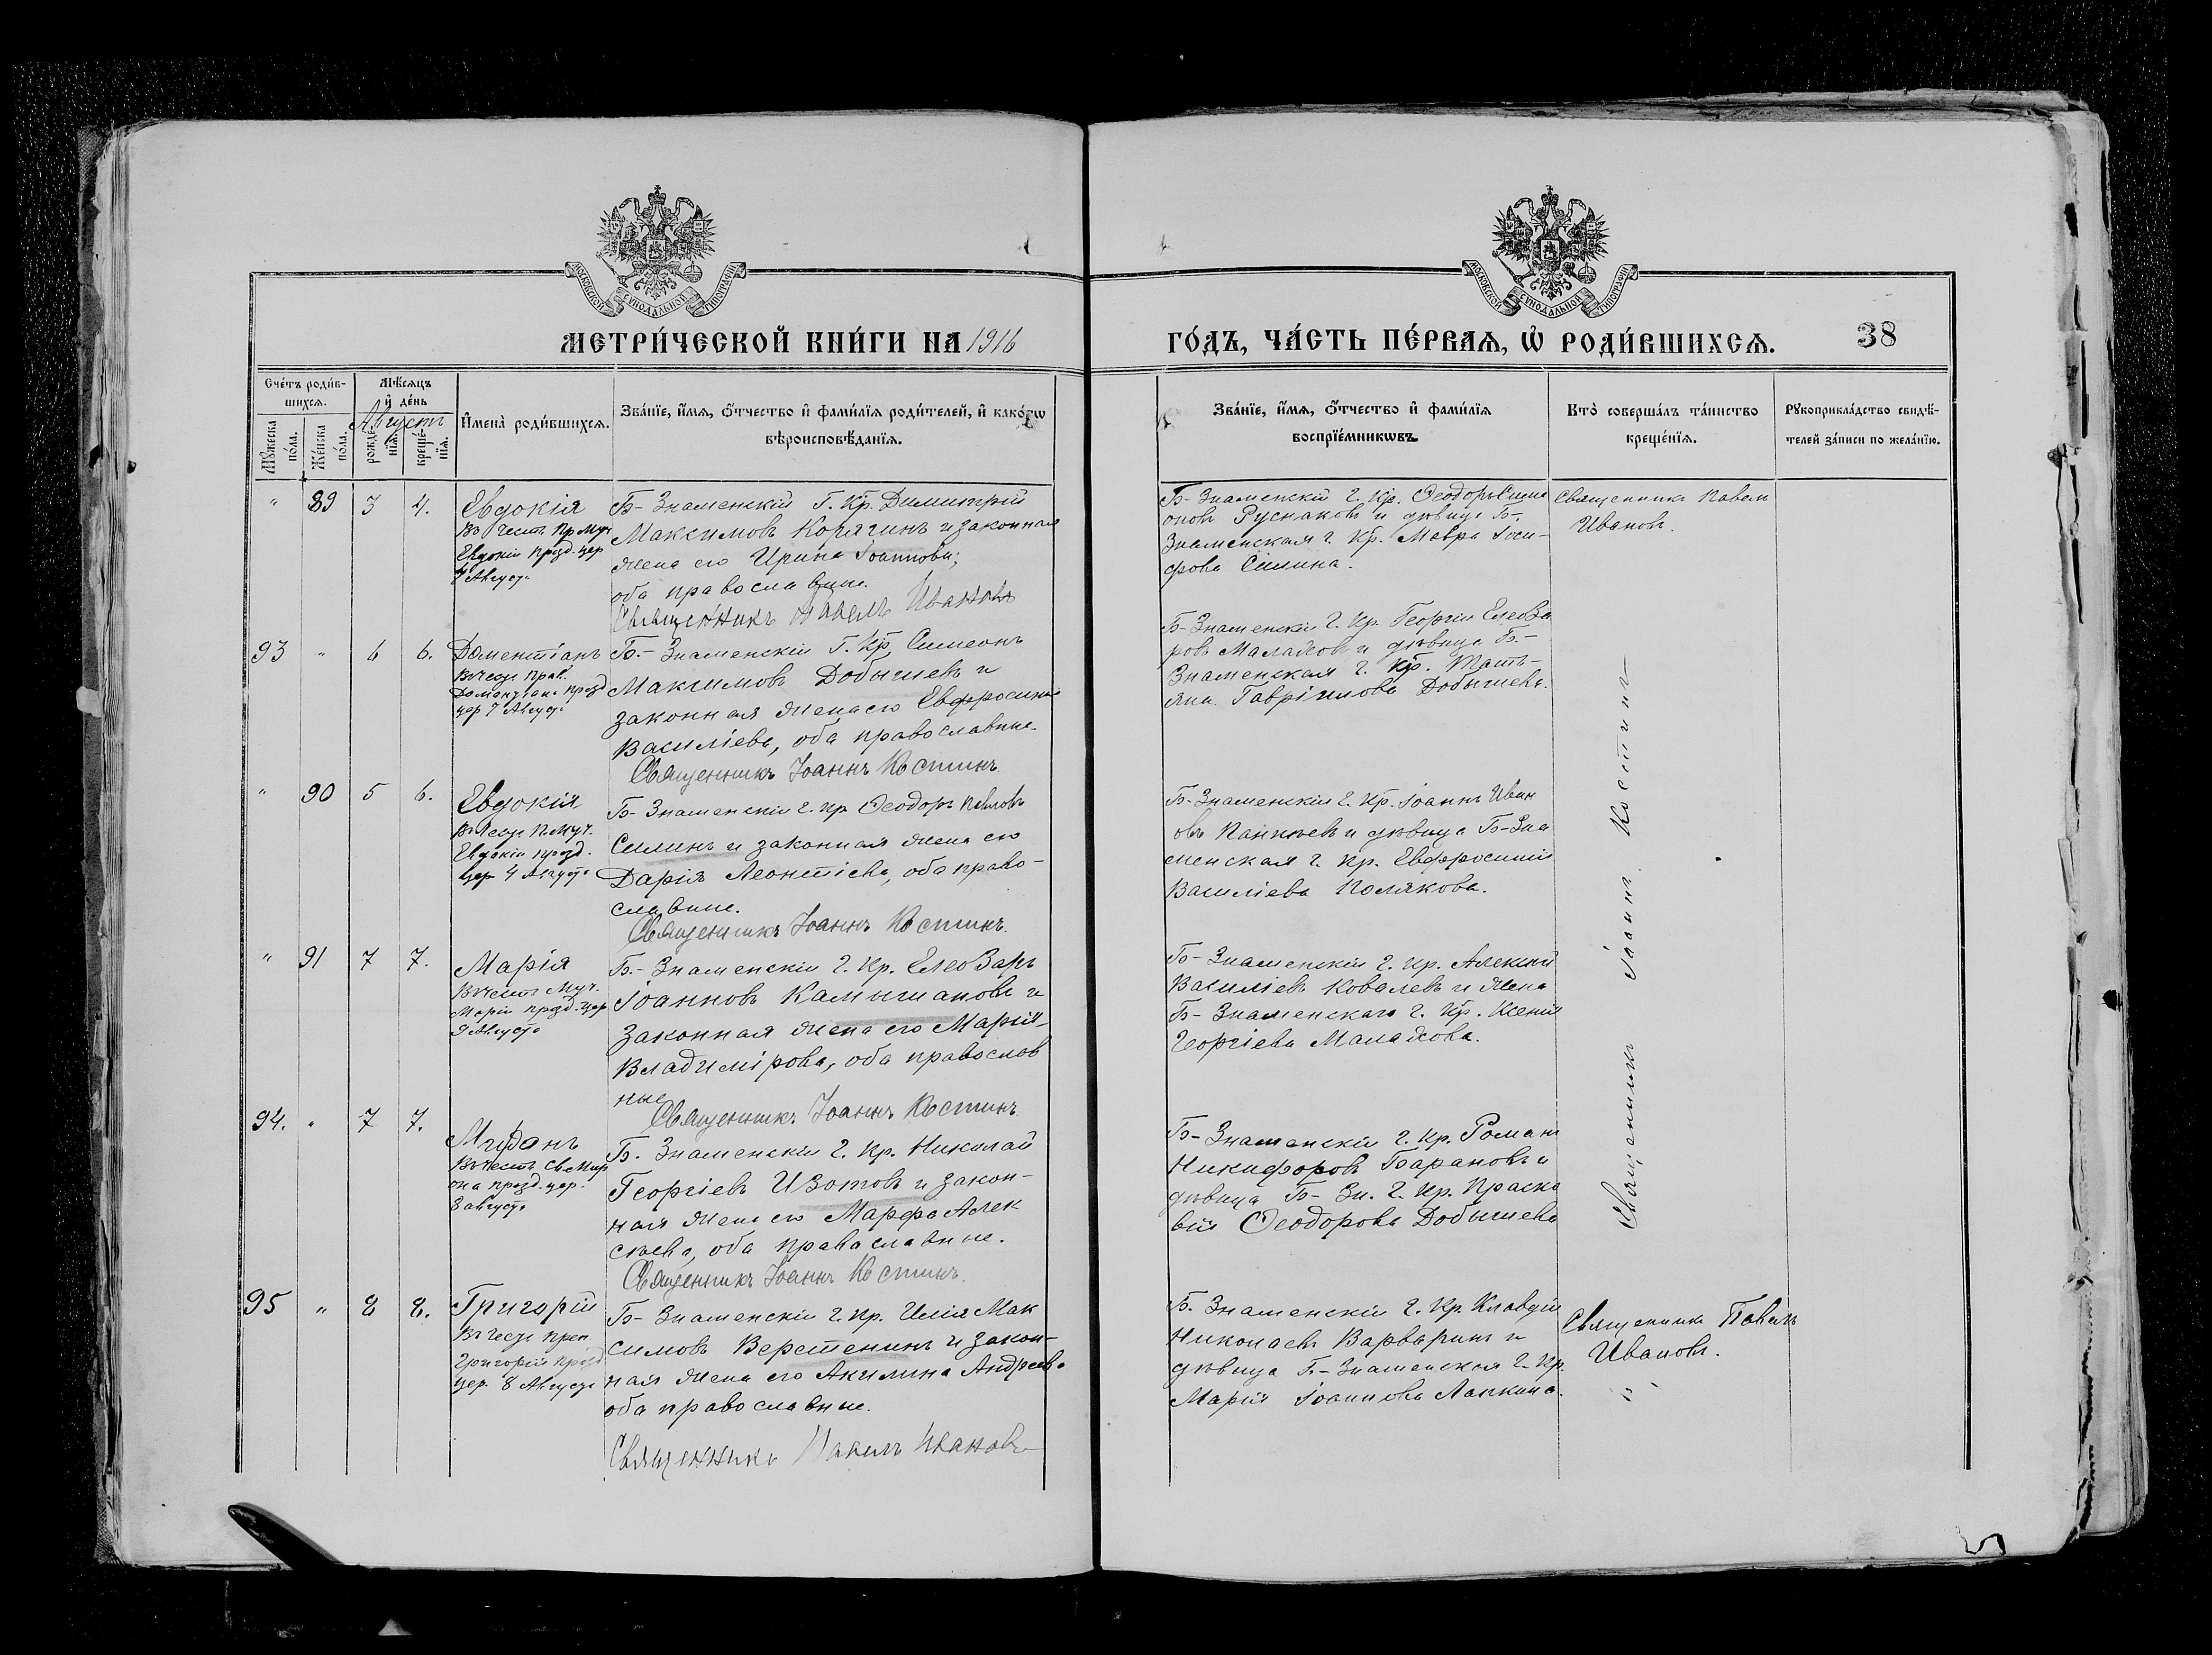 МОСКОВСКОЙ СУНОДАЛЬНОЙ ТИПОГРАФІИ
МОСКОВСКОЙ СУНОДАЛЬНОЙ ТИПОГРАФІИ
МЕТРИ́ЧЕСКОЙ КНИ́ГИ НА 1916
ГО́ДЪ, ЧА́СТЬ ПЕ́РВАѦ, Ѡ҆ РОДИ́ВШИХСѦ.
38
Сче́тъ роди́в-
шихсѧ.
Мꙋ́жеска по́ла.
Же́нска по́ла.
Мѣ́сѧцъ
и҆ де́нь
Августъ
рожде́-
нїѧ.
креще́-
нїѧ.
И҆мена̀ роди́вшихсѧ.
Зва́нїе, и҆́мѧ, ѻ҆́тчество и҆ фами́лїѧ роди́телей, и҆ како́гѡ
вѣроисповѣ́данїѧ.
Зва́нїе, и҆́мѧ, ѻ҆́тчество и҆ фами́лїѧ
воспрїе́мникѡвъ.
Кто̀ соверша́лъ та́инство
креще́нїѧ.
Рꙋкоприкла́дство свидѣ́-
телей за́писи по жела́нїю.
" 89 3 4.
Евдокія
Въ честь Пр Муч.
Евдокіи празд. цер
4 Август.
Б-Знаменскій Г. Кр. Димитрій
Максимовъ Корягинъ и законная
жена его Ирина Іоаннова;
оба православные.
Священникъ Павелъ Ивановъ
Б-Знаменскій г. Кр. Ѳеодоръ Симе
оновъ Руснаковъ и дѣвица Б-
Знаменская г. Кр. Мавра Іоси-
фова Силина.
Священникъ Павелъ
Ивановъ.
93 " 6 6.
Доментіанъ
Въ честь Прав.
празд
цер 7 Август.
Б.-Знаменскій Г. Кр. Симеонъ
Максимовъ Добышевъ и
законная жена его Евфросинія
Василіева, оба православные.
Священникъ Іоаннъ Костинъ.
Б-Знаменскій г. Кр. Георгій Елеоза
ровъ Малаховъ и дѣвица Б-
Знаменская г. Кр. Тать-
яна Гавріилова Добышева.
" 90 5 6.
Евдокія
Въ честь П. Муч.
Евдокіи празд.
цер 4 Августа
Б-Знаменскій г. Кр. Ѳеодоръ Павловъ
Силинъ и законная жена его
Дарія Леонтіева, оба право-
славные.
Священникъ Іоаннъ Костинъ.
Б-Знаменскій г. Кр. Іоаннъ Иван
овъ и дѣвица Б-Зна
менская г. Кр. Евфросинія
Василіева Полякова.
" 91 7 7.
Марія
Въ честь Муч.
Маріи празд. цер
9 Августа
Б.-Знаменскій г. Кр. Елеозаръ
Іоанновъ Камышановъ и
законная жена его Марія
Владимірова, оба православ
ные
Священникъ Іоаннъ Костинъ
Б-Знаменскій г. Кр. Алексій
Василіевъ Ковалевъ и жена
Б-Знаменскаго г. Кр. Ксенія
Георгіева Малахова.
94. " 7 7.
Миронъ
Въ честь Св. Мир
она празд. цер.
8 августа
Б. Знаменскій г. Кр. Николай
Георгіевъ Изотовъ и закон-
ная жена его Марфа Алек
сѣева, оба православные.
Священникъ Іоаннъ Костинъ.
Б-Знаменскій г. Кр. Романъ
Никифоровъ Барановъ и
дѣвица Б-Зн. г. Кр. Праско
вія Ѳеодорова Добышева
Священникъ Іоаннъ Костинъ
95 " 8 8.
Григорій
Въ честь Преп
Григорія празд
цер. 8 Августа
Б-Знаменскій г. Кр. Илія Мак
симовъ Веретенинъ и закон-
ная жена его Акилина Андреева
оба православные.
Священникъ Павелъ Ивановъ
Б. Знаменскій г. Кр. Клавдій
Николаевъ Варваринъ и
дѣвица Б-Знаменская г. Кр.
Марія Іоаннова Лапкина.
Священникъ Павелъ
Ивановъ.